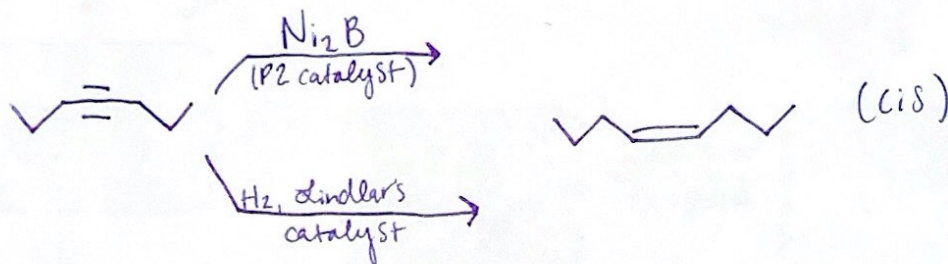 Ni₂B
(P2 catalyst)
(cis)
H₂, Lindlars
catalyst